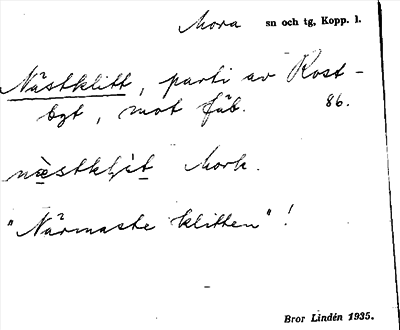 Mora sn och tg, Kopp. l.
Nästklitt, parti av Rost-
byt, mot fäb. 86.
næstkļit Mork.
"Närmaste klitten"!
Bror Lindén 1935.